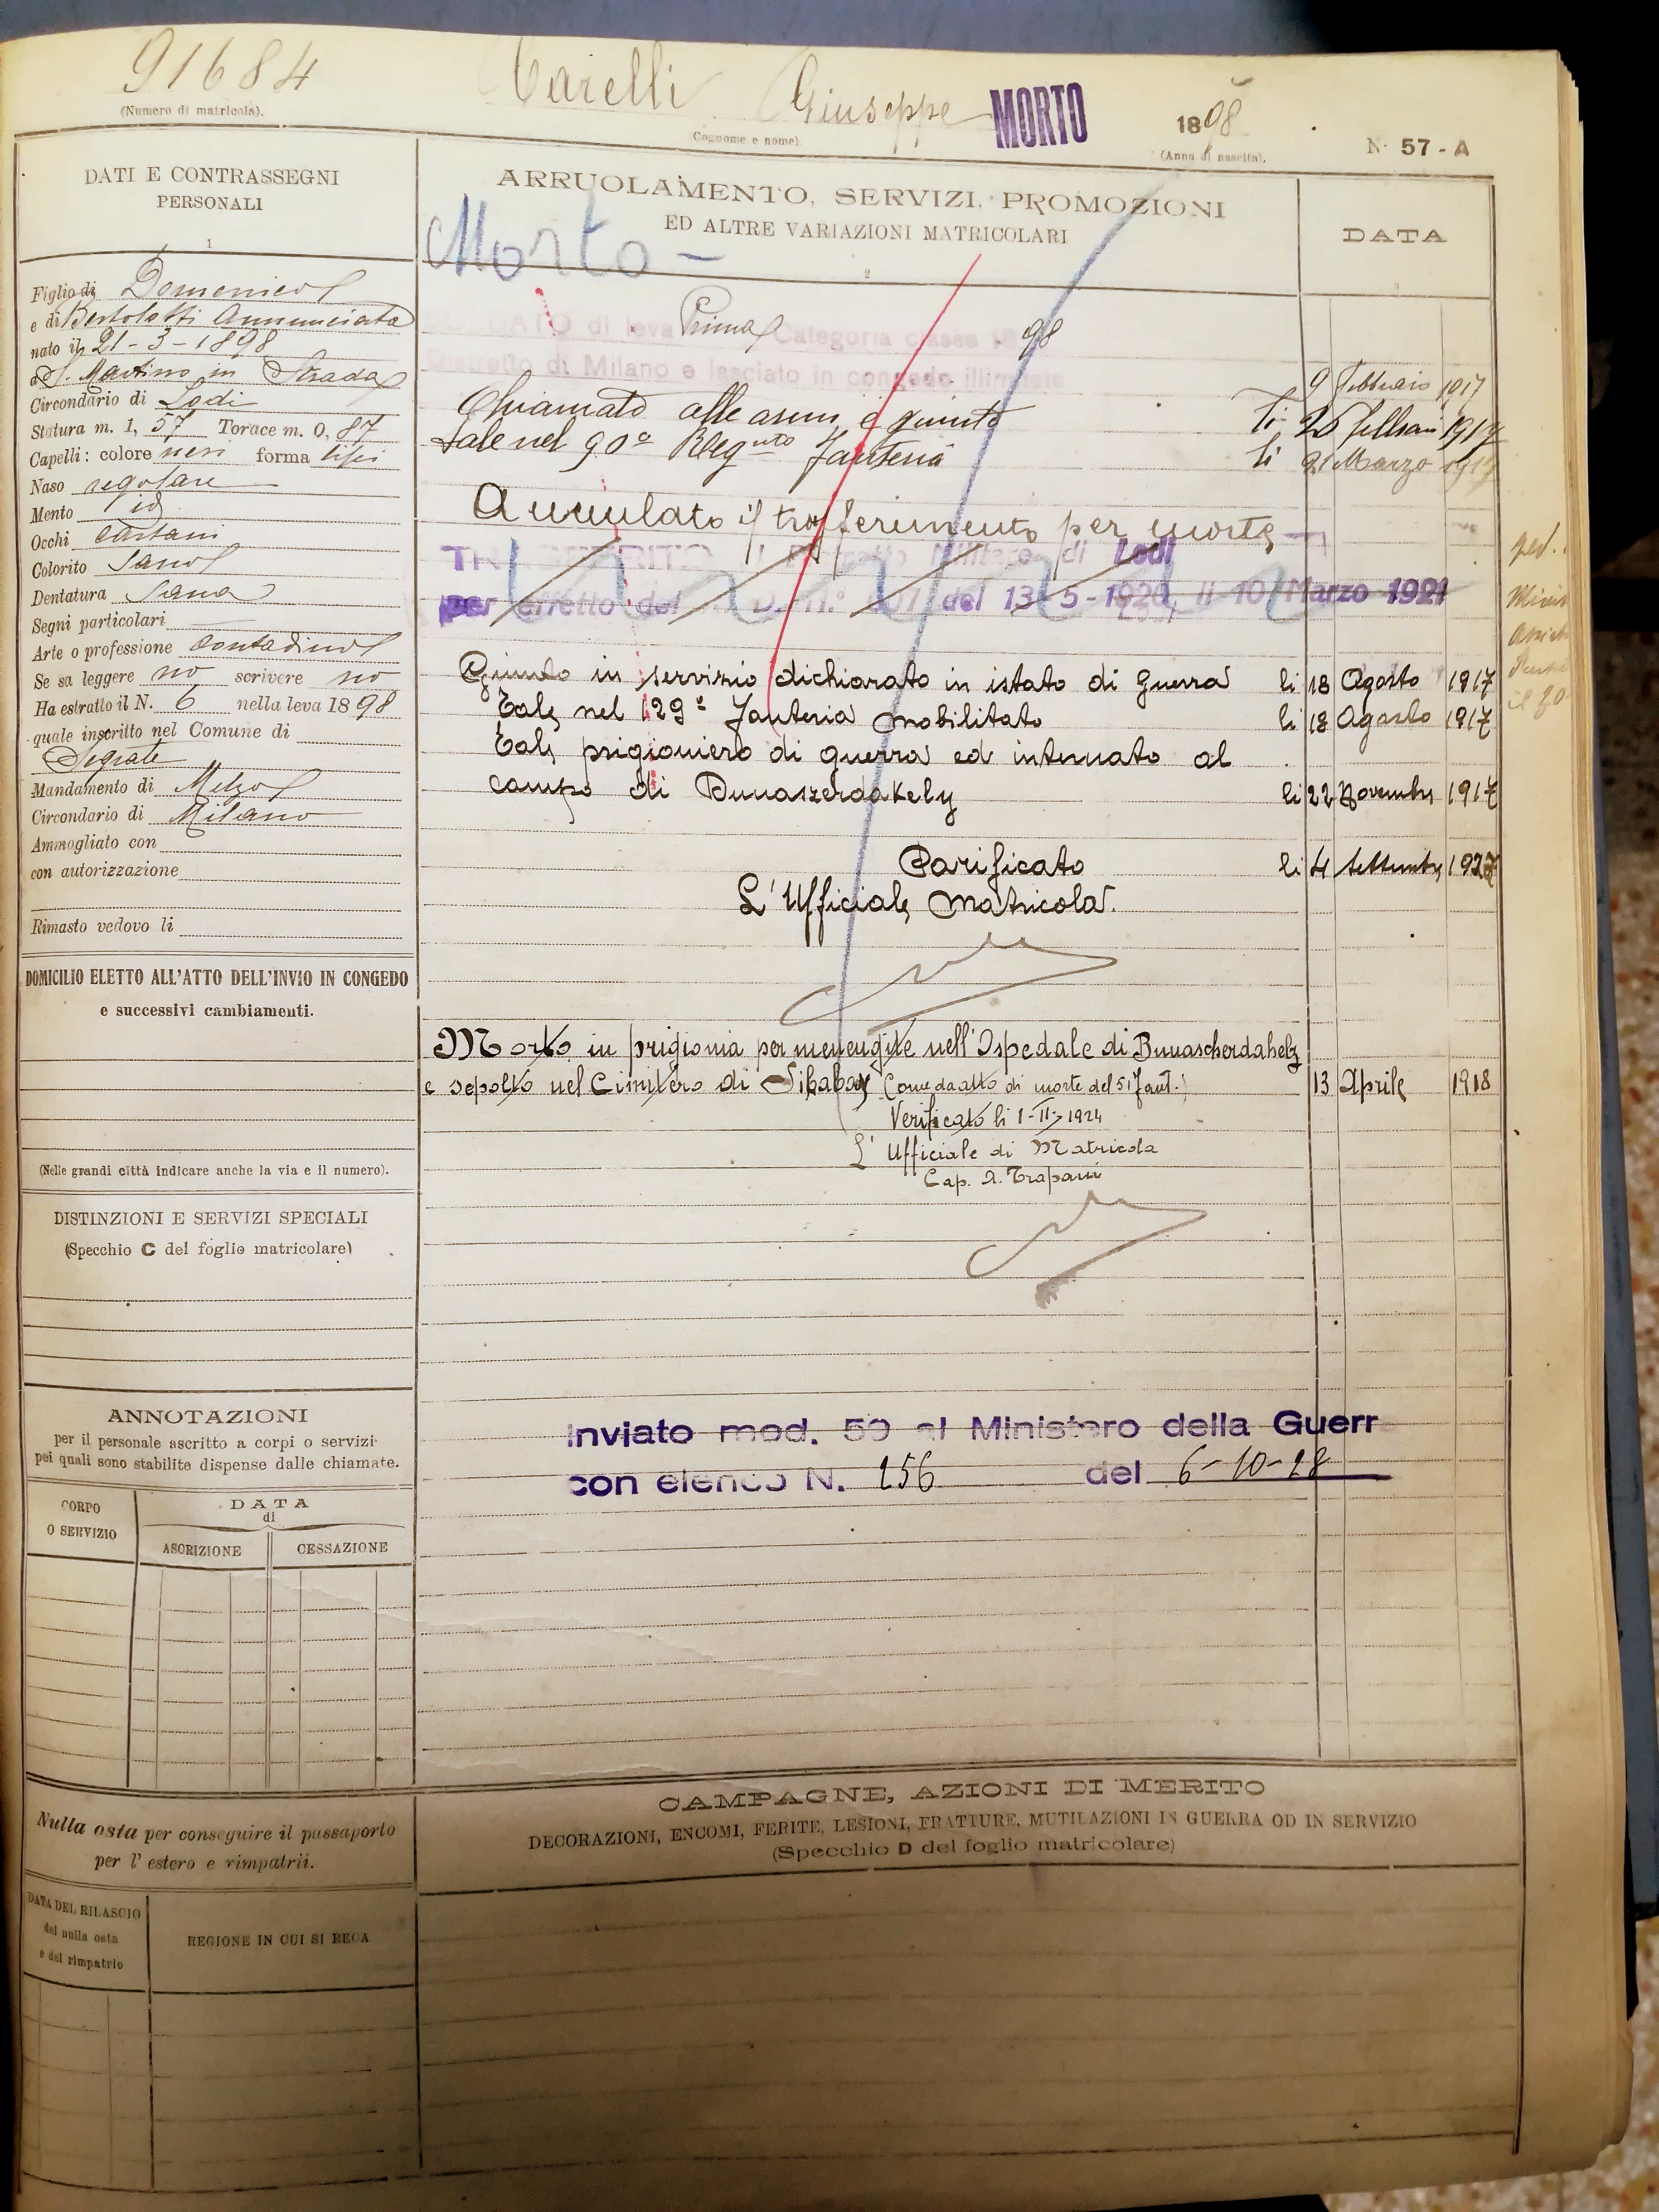 91684
(Numero di matricola).
Tarelli Giuseppe
MORTO
(Cognome e nome).
1898
(Anno di nascita).
N. 57 - A
DATI E CONTRASSEGNI
PERSONALI
1
Figlio di Domenico
e di Bertoletti Annunciata
nato il 21-3-1898
a S. Martino in Strada
Circondario di Lodi
Statura m. 1, 57 Torace m. 0, 87
Capelli: colore neri forma lisci
Naso regolare
Mento id
Occhi castani
Colorito sano
Dentatura sana
Segni particolari
Arte o professione contadino
Se sa leggere no scrivere no
Ha estratto il N. 6 nella leva 1898
quale inscritto nel Comune di
Segrate
Mandamento di Melzo
Circondario di Milano
Ammogliato con
con autorizzazione
Rimasto vedovo li
DOMICILIO ELETTO ALL'ATTO DELL'INVIO IN CONGEDO
e successivi cambiamenti.
(Nelle grandi città indicare anche la via e il numero).
DISTINZIONI E SERVIZI SPECIALI
(Specchio C del foglio matricolare)
ANNOTAZIONI
per il personale ascritto a corpi o servizi
pei quali sono stabilite dispense dalle chiamate.
CORPO
O SERVIZIO
DATA
di
ASCRIZIONE
CESSAZIONE
Nulla osta per conseguire il passaporto
per l'estero e rimpatrii.
DATA DEL RILASCIO
del nulla osta
e del rimpatrio
REGIONE IN CUI SI RECA
ARRUOLAMENTO, SERVIZI, PROMOZIONI
ED ALTRE VARIAZIONI MATRICOLARI
2
DATA
3
Morto -
di leva Prima Categoria classe 1898
Distretto di Milano e lasciato in congedo illimitato
9 Febbraio 1917
Chiamato alle armi e giunto li 26 1917
Tale nel 90° Regnto Fanteria li 21 Marzo 1917
Annullato il trasferimento per morte
Distretto Militare di Lodi
per effetto del del 13-5-1920, li 10 Marzo 1921
Giunto in servizio dichiarato in istato di guerra li 18 Agosto 1917
Tale nel 129° Fanteria mobilitato li 18 Agosto 1917
Tale prigioniero di guerra ed internato al
campo di Dunaszerdakely li 22 Novembre 1917
Parificato li 4 Settembre 1927
L'Ufficiale Matricola.
Morto in prigionia per menengite nell'Ospedale di Bunascherdahelz
e sepolto nel Cimitero di Sikabay (come da atto di morte del 51 fant.) 13 Aprile 1918
Verificato li 1-II-1924
L'Ufficiale di Matricola
Cap. A. Trapani
Inviato mod. 59 al Ministero della Guerr
con elenco N. 156 del 6-10-28
CAMPAGNE, AZIONI DI MERITO
DECORAZIONI, ENCOMI, FERITE, LESIONI, FRATTURE, MUTILAZIONI IN GUERRA OD IN SERVIZIO
(Specchio D del foglio matricolare)